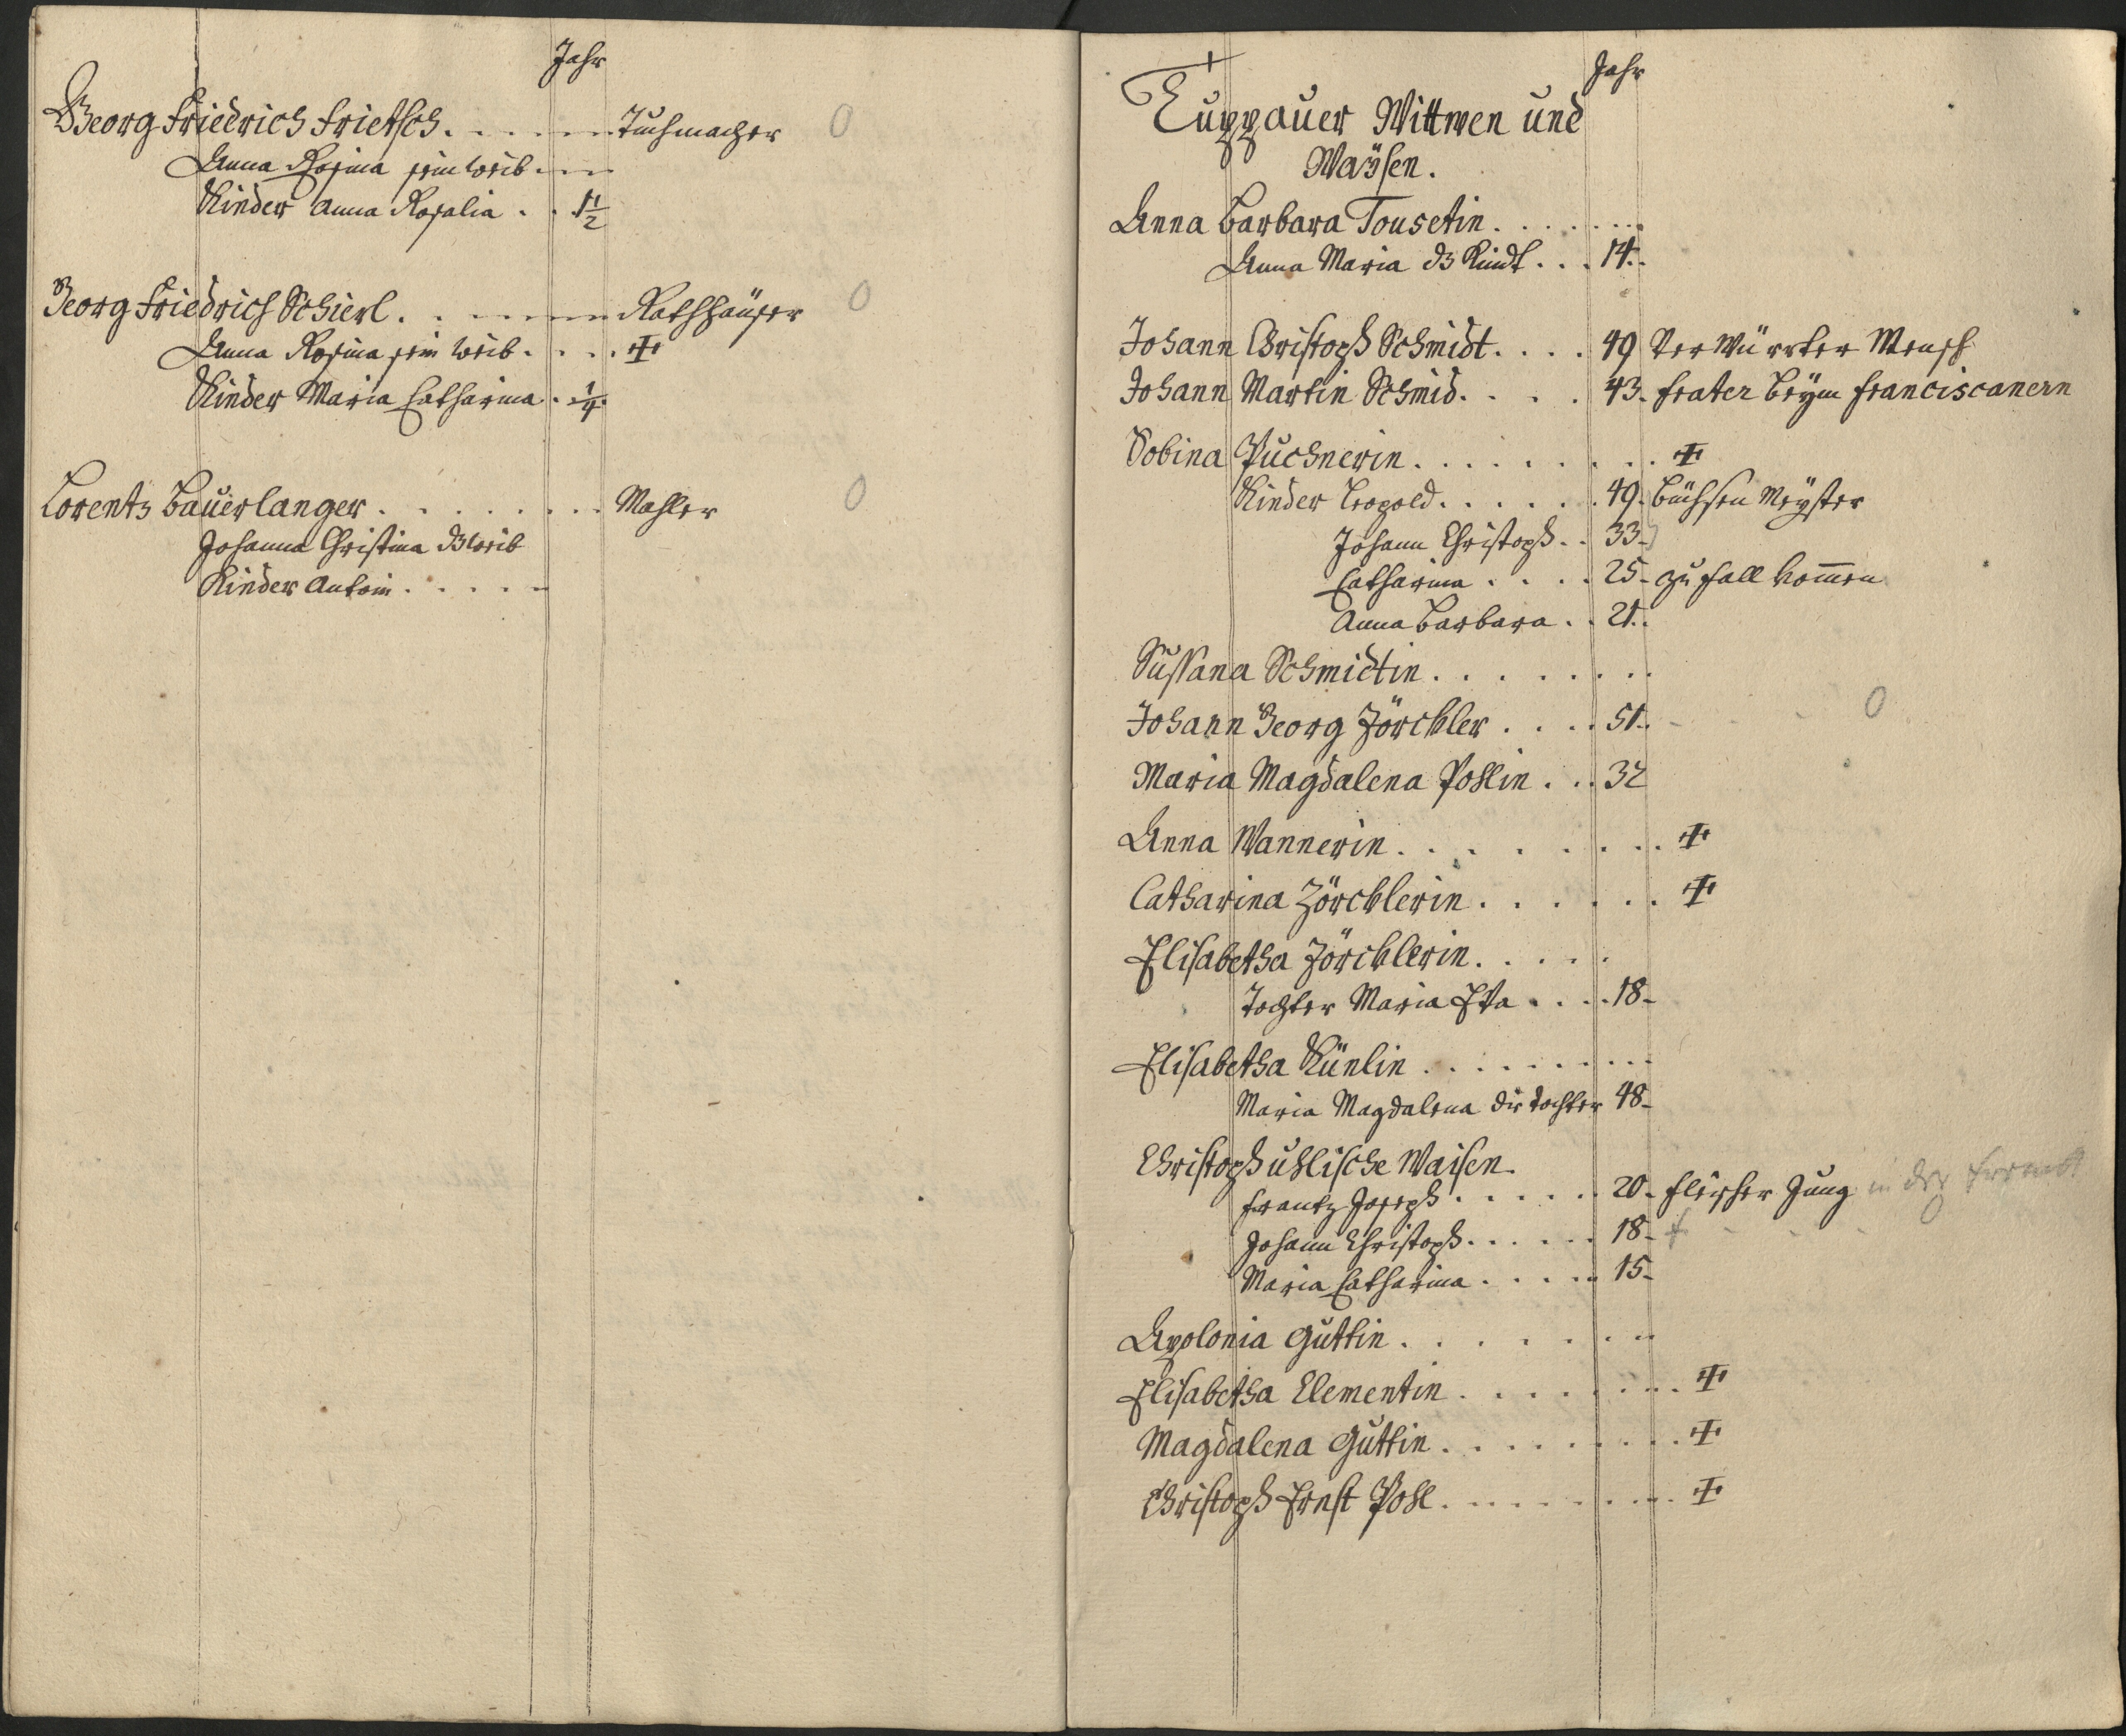 Jahr
Georg Friedrich Frietsch. . . . . Tuchmacher 0
Anna Rosina sein weib. . .
Kinder Anna Rosalia . . 1 1/2
Georg Friedrich Schierl. . . . . . 0
Anna Rosina sein weib. . . . ‡
Kinder Maria Catharina . 1/4.
Lorentz Bauerlanger. . . . . . . Mahler 0
Johanna Christina dz weib
Kinder Antoni. . . . .
Jahr
Tuppauer Wittwen und
Waÿsen.
Anna Barbara Tousetin. . . . . .
Anna Maria dz Kindt. . . 14.
Johann Christoph Schmidt. . . . 49 Verwürrter Mensch
Johann Martin Schmid. . . . 43. frater beÿm franciscanern
Sobina Puchnerin. . . . . . . . . ‡
Kinder Leopold. . . . . . 49. büchsen Meÿster
Johann Christoph. . 33.
Catharina . . . . 25. zu fall kom̄en
Anna Barbara . . 21.
Sussana Schmidtin. . . . . . . .
Johann Georg Zörckler . . . . 51. 0
Maria Magdalena Pohlin . . . 32
Anna Wannerin. . . . . . . . ‡
Catharina Zörcklerin. . . . . . ‡
Elisabetha Zörcklerin. . . . .
Tochter Maria Eva . . . . 18.
Elisabetha Künlin . . . . . . . . .
Maria Magdalena die tochter 48.
Christoph uhlische Waisen.
Frantz Joseph. . . . . . 20. fleischer Jung in der fremdt
Johann Christoph. . . . . . 18. ‡ 0
Maria Catharina . . . . . 15.
Apolonia Guttin. . . . . . . .
Elisabetha Clementin . . . . . . . ‡
Magdalena Guttin. . . . . . . . . ‡
Christoph Ernst Pohl. . . . . . . . ‡